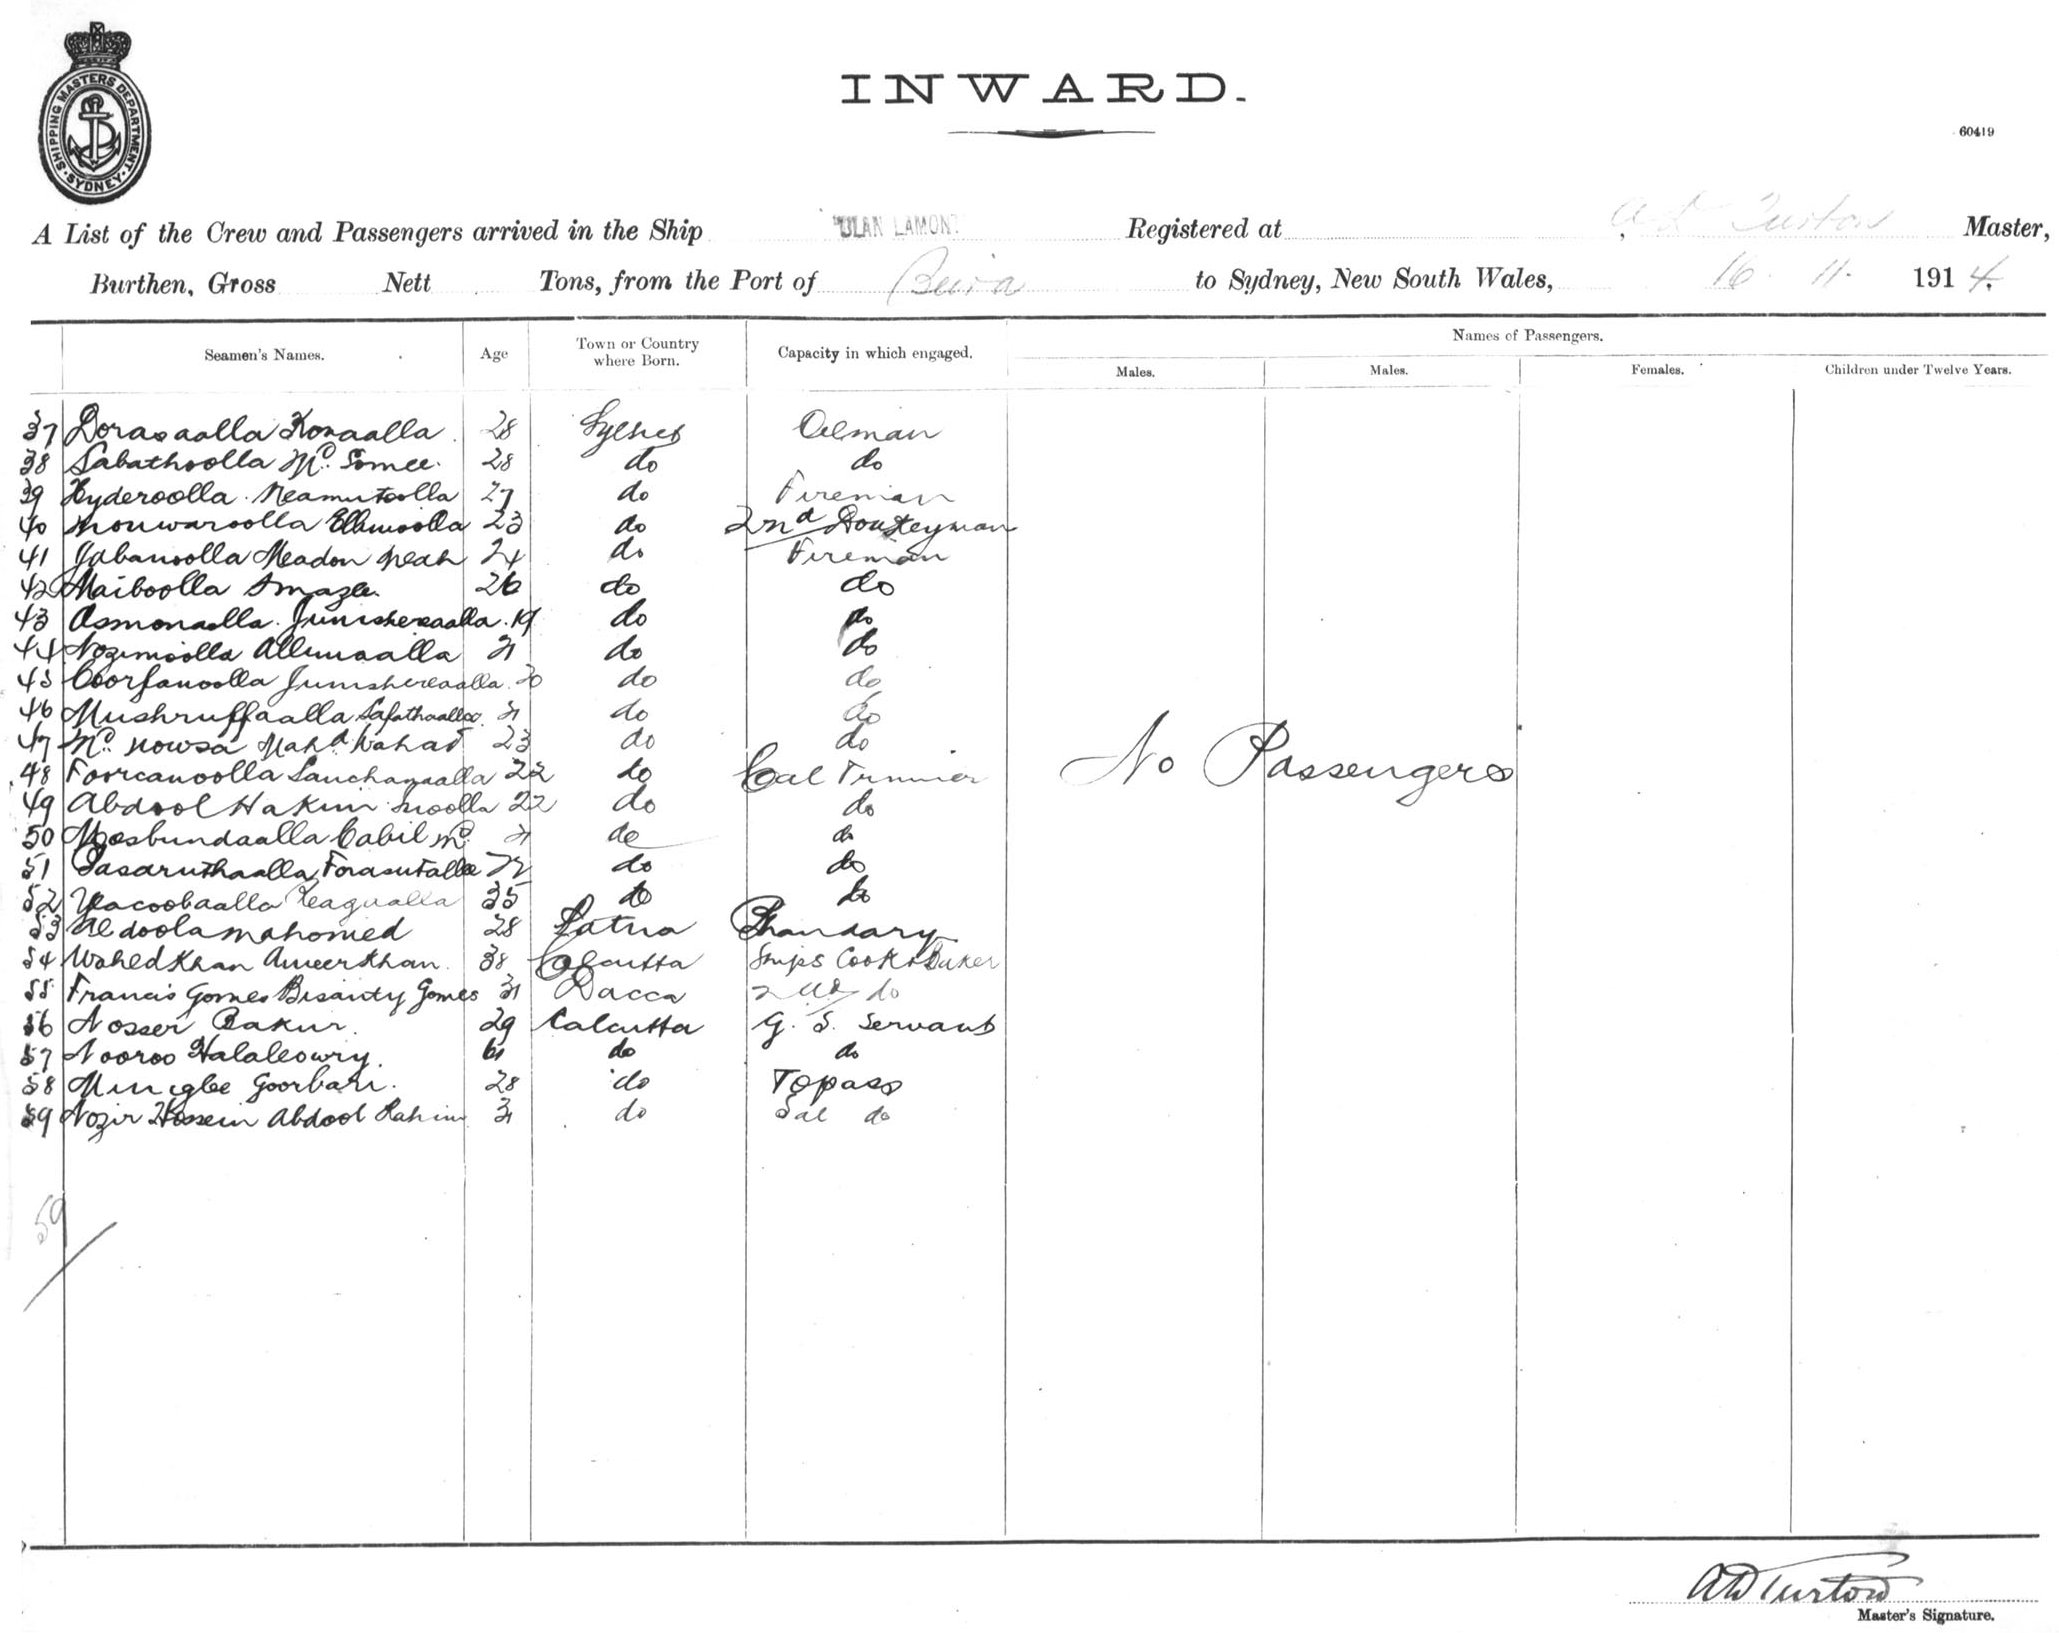 SHIPPING MASTERS DEPARTMENT. SYDNEY
INWARD.
60419
A List of the Crew and Passengers arrived in the Ship CLAN LAMONT Registered at A D Turton Master,
Burthen, Gross Nett Tons, from the Port of Beira to Sydney, New South Wales, 16. 11. 1914.
Seamen's Names. Age Town or Country where Born. Capacity in which engaged. Names of Passengers.
Males. Males. Females. Children under Twelve Years.
37 28 Sylhet Oilman
38 Sabathoolla Md. Somee. 28 do do
39 Hyderoolla Neamutoolla 27 do Fireman
40 Monwaroolla 23 do 2nd Donkeyman
41 Jabanoolla Meadon Meah 24 do Fireman
42 Maiboolla 26 do do
43 Asmonaolla Junishereaalla 19 do do
44 Nozimoolla 31 do do
45 Junishereaalla 30 do do
46 Mushruffaalla 31 do do
47 Md. Nowsa Mahd Wahad 23 do do
48 Foorcanoolla 22 do Coal Trimmer
49 Abdool Hakim 22 do do
50 Cabil Md. 31 do do
51 do do
52 Yacoobaalla 35 do do
53 Abdoola Mahomed 28 Patna Bhandary
54 Wahed Khan Ameer Khan. 38 Calcutta Ships Cook & Baker
55 Francis Gomes Gomes 31 Dacca 2nd do
56 Nosser Bakur. 29 Calcutta G. S. Servant
57 Nooroo do do
58 Goorbari. 28 do Topass
59 Nozir Hossein Abdool Rahim 31 do do
No Passengers
59
A D Turton
Master's Signature.